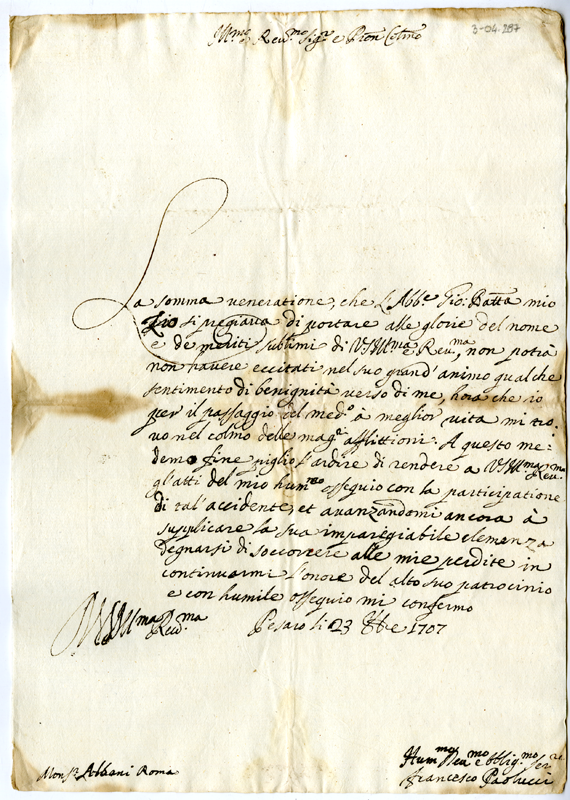 3-04.287
Ill.mo Rev.mo Sig.re e Pron Colmo
La somma veneratione, che l'Abb.e Gio: Batta mio
Zio si pregiava di portare alle glorie del nome
e de meriti sublimi di VS Ill.ma e Reu.ma, non potrà
non havere eccitati nel suo grand'animo qualche
sentimento di benignità verso di me, hora che io
per il passaggio del med.o à meglior vita mi tro
vo nel colmo delle mag.ri afflittioni. A questo me:
demo fine piglio l'ardire di rendere a VS Ill.ma Reu.ma
gl'atti del mio hum.mo ossequio con la participatione
di tal'accidente, et avanzandomi ancora à
supplicare la sua impareggiabile clemenza
degnarsi di soccorrere alle mie perdite in
continuarmi l'onore del alto suo patrocinio
e con humile ossequio mi confermo
VS Ill.ma Reu.ma
Pesaro li 23 1707
Hum.mo Deu.mo e Oblig.mo Ser.re
Mons.r Albani Roma
Francesco Paolucci